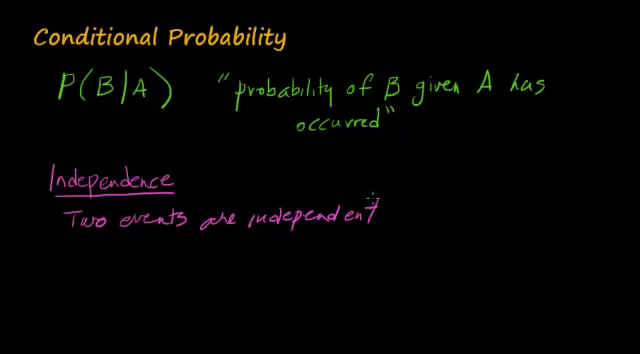 Conditional Probability
P(B|A) "probability of B given A has
occurred"
Independence
Two events are independent